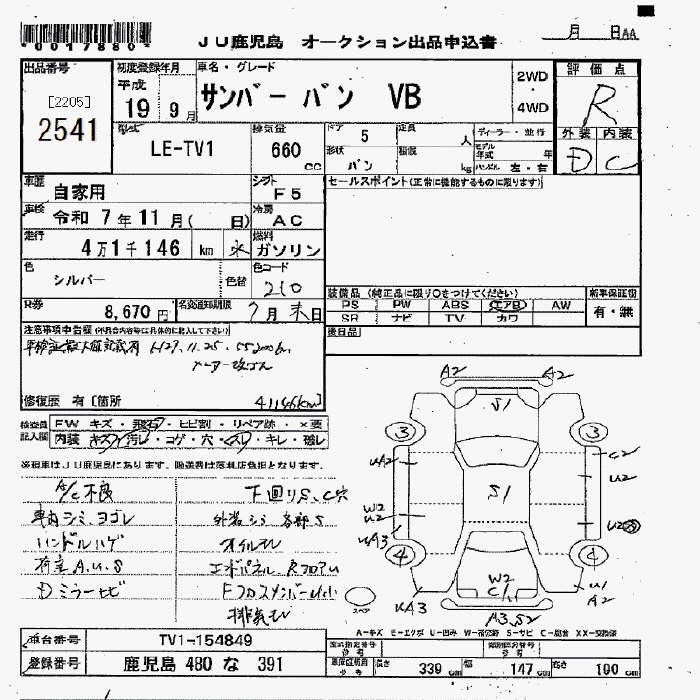 *0017880*
JU鹿児島 オークション出品申込書
月 日AA
出品番号
[2205]
2541
初度登録年月
平成
19 9月
車名・グレード
サンバー バン VB
2WD
・
4WD
評価点
R
外装 内装
D C
型式
LE-TV1
排気量
660 cc
ドア 5
定員 人
形状 バン
積載 kg
ディーラー・並行
モデル年式 年
ハンドル 左・右
車歴
自家用
シフト
F5
セールスポイント(正常に機能するものに限ります)
車検
令和 7年 11月( 日)
冷房
AC
走行
4万1千146 km
燃料
ガソリン
色
シルバー
色替
色コード
210
R券
8,670円
名変通知期限
7月末日
装備品(純正品に限り○をつけてください)
PS PW ABS エアB AW
SR ナビ TV カワ
新車保証書
有・無
後日品
注意事項申告欄(不具合内容等は具体的に記入して下さい)
メーター改ざん
修復歴 有[箇所
41146km]
検査員記入欄
FW キズ・飛石・ヒビ割・リペア跡・×要
内装 キズ・汚レ・コゲ・穴・スレ・キレ・破レ
※現車はJU鹿児島にあります。陸送費は落札店負担となります。
A/C不良
下回りS、C穴
車内シミ、ヨゴレ
外装シミ各部S
ハンドルハゲ
オイルモレ
荷室A.U.S
エプロンパネル、RフロアU
Dミラーサビ
排気モレ
A2 A2
S1
3 3
C2
U2
S1
W2
U2
4
W2
C1
U1
A2
スペア
A3.S2
A-キズ E-エクボ U-凹み W-補修跡 S-サビ C-腐食 XX-交換済
車台番号
TV1-154849
登録番号
鹿児島 480 な 391
型式指定番号
類別区分番号
参考
長さ 339cm 幅 147cm 高さ 190cm